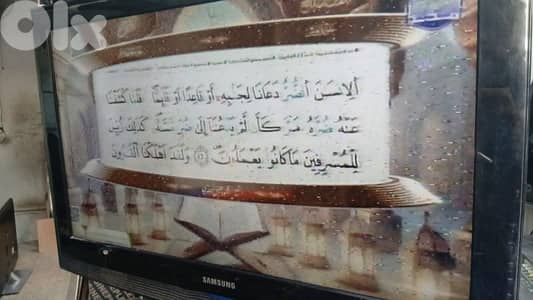 OLX
ٱلْإِنسَٰنَ ٱلضُّرُّ دَعَانَا لِجَنۢبِهِۦٓ أَوْ قَاعِدًا أَوْ قَآئِمًا فَلَمَّا كَشَفْنَا
عَنْهُ ضُرَّهُۥ مَرَّ كَأَن لَّمْ يَدْعُنَآ إِلَىٰ ضُرٍّ مَّسَّهُۥ كَذَٰلِكَ زُيِّنَ
لِلْمُسْرِفِينَ مَا كَانُوا۟ يَعْمَلُونَ ١٢ وَلَقَدْ أَهْلَكْنَا ٱلْقُرُونَ
SAMSUNG